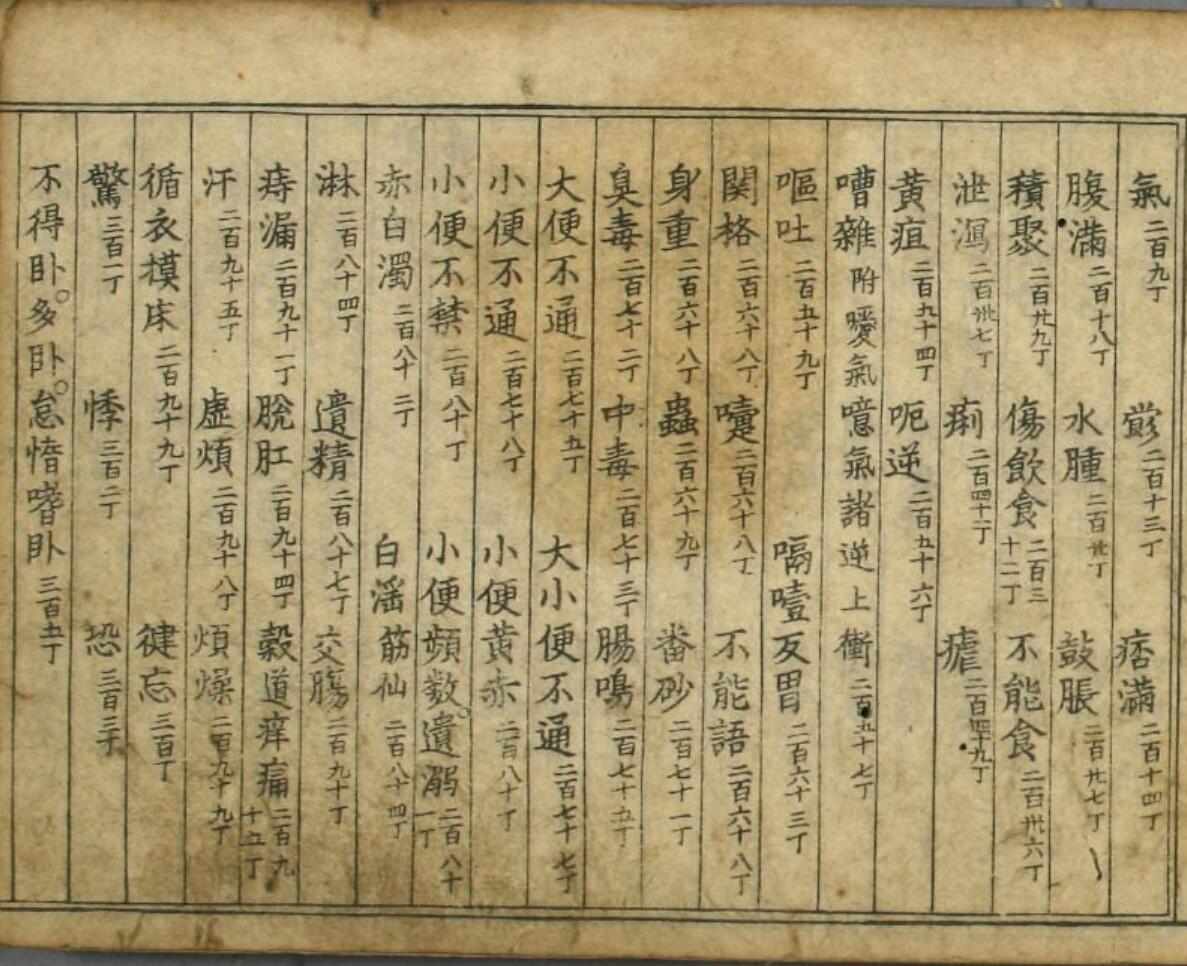 氣 二百九丁 鬱 二百十三丁 痞滿 二百十四丁
腹滿 二百十八丁 水腫 二百卅丁 鼓脹 二百廿七丁
積聚 二百廿九丁 傷飲食 二百三十二丁 不能食 二百卅六丁
泄瀉 二百卅七丁 痢 二百四十一丁 瘧 二百四十九丁
黃疸 二百五十四丁 呃逆 二百五十六丁
嘈雜 附噯氣噫氣諸逆上衝 二百五十七丁
嘔吐 二百五十九丁 嗝噎反胃 二百六十三丁
関格 二百六十八丁 嚏 二百六十八丁 不能語 二百六十八丁
身重 二百六十八丁 蟲 二百六十九丁 畨砂 二百七十一丁
臭毒 二百七十二丁 中毒 二百七十三丁 腸鳴 二百七十五丁
大便不通 二百七十五丁 大小便不通 二百七十七丁
小便不通 二百七十八丁 小便黃赤 二百八十丁
小便不禁 二百八十丁 小便頻数。遺溺 二百八十一丁
赤白濁 二百八十二丁 白滛筋仙 二百八十四丁
淋 二百八十四丁 遺精 二百八十七丁 交腸 二百九十丁
痔漏 二百九十一丁 脫肛 二百九十四丁 穀道痒痛 二百九十五丁
汗 二百九十五丁 虛煩 二百九十八丁 煩燥 二百九十九丁
循衣摸床 二百九十九丁 健忘 三百丁
驚 三百一丁 悸 三百二丁 恐 三百三丁
不得卧。多卧。怠惰嗜卧 三百五丁